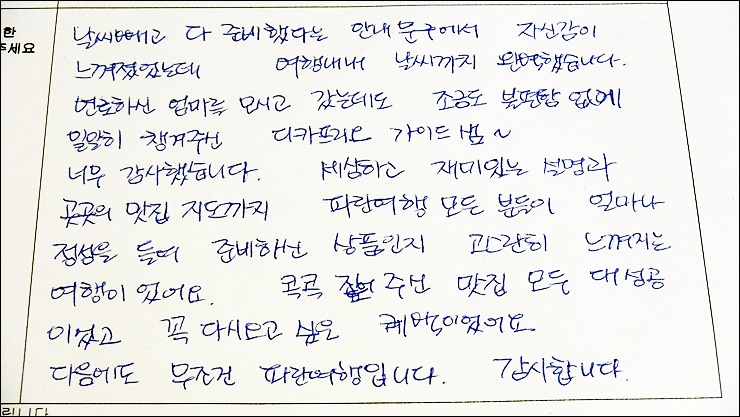 한
주세요
날씨빼고 다 준비했다는 안내문구에서 자신감이
느껴졌었는데 여행내내 날씨까지 완벽했습니다.
연로하신 엄마를 모시고 갔는데도 조금도 불편함 없게
일일히 챙겨주신 디카프리오 가이드쌤~
너무 감사했습니다. 세심하고 재미있는 설명과
곳곳의 맛집 지도까지 파란여행 모든 분들이 얼마나
정성을 들여 준비하신 상품인지 고스란히 느껴지는
여행이었어요. 콕콕 집어주신 맛집 모두 대성공
이었고 꼭 다시오고 싶은 패키지이었어요
다음에도 무조건 파란여행입니다. 감사합니다.
립니다